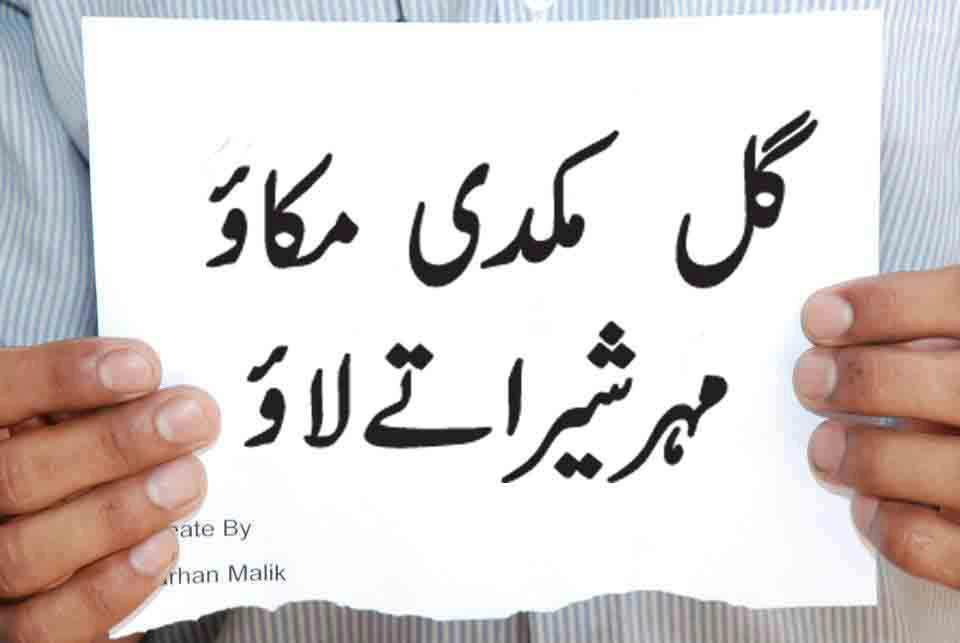 گل مکدی مکاؤ
مہر شیر اتے لاؤ
eate By
rhan Malik